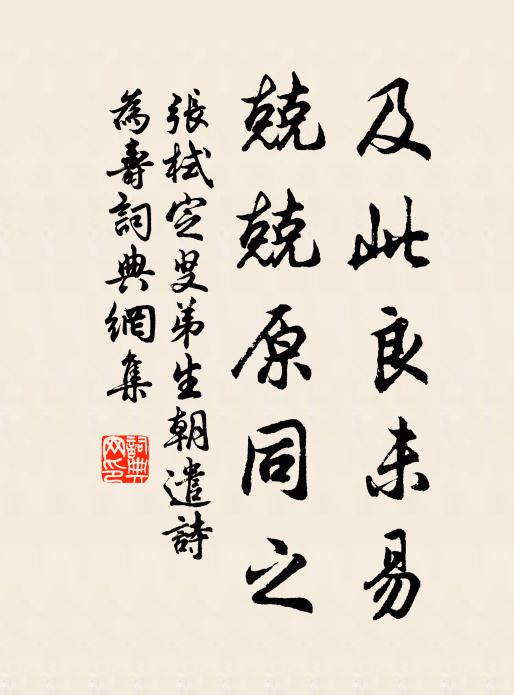 及此良未易
兢兢原同之
張栻定叟弟生朝遣詩
為壽詞典網集
詞典网印